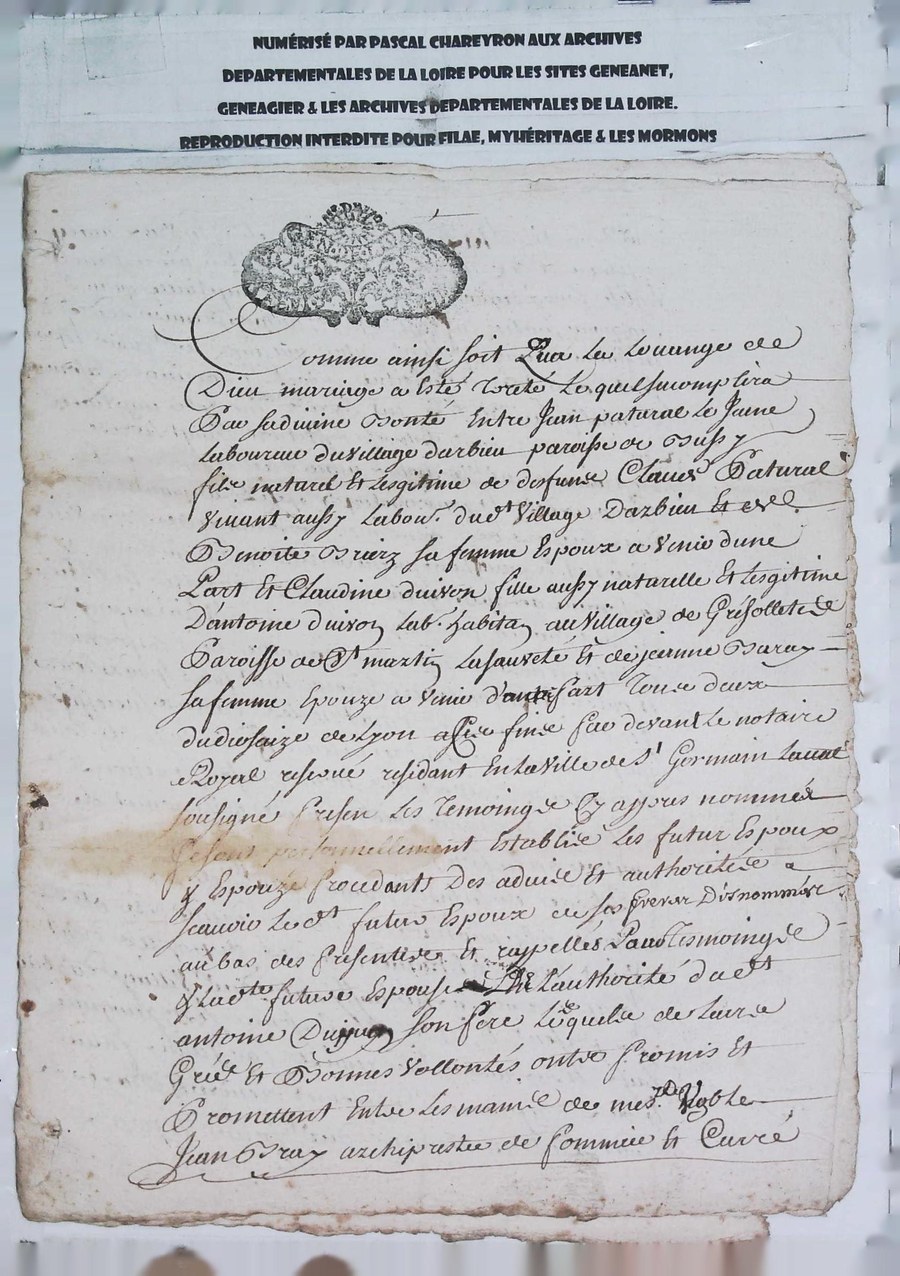 NUMÉRISÉ PAR PASCAL CHAREYRON AUX ARCHIVES
DEPARTEMENTALES DE LA LOIRE POUR LES SITES GENEANET,
GENEAGIER & LES ARCHIVES DEPARTEMENTALES DE LA LOIRE.
REPRODUCTION INTERDITE POUR FILAE, MYHÉRITAGE & LES MORMONS
Comme ainsi soit Qua La Louange de
Dieu mariage a Esté Le quel sacomplira
Par sa divine Bonté Entre Jean patural Le Jeune
Laboureur du village darbieu paroisse de Bussy
fils naturel Et Lesgitime de desfunt Claude Patural
vivant aussy Labou.r dudt village Darbieu Et de
Benoite sa femme Espoux a venir dune
Part Et Claudine fille aussy naturelle Et Lesgitime
D'antoine Lab.r habitan au village de Grésollette
Paroisse de St martin Lasauveté Et de jeanne Baray
sa femme Epouze a venir Part Tous deux
du diosaize de Lyon fins par devant Le notaire
Royal reservé residant En La ville de St Germain Laval
sousigné presen Les Temoings Cy appres nommés
personnellement Establis Les futur Espoux
& Epouze procedants Des advis Et authorités a
scavoir Le dt futur Espoux de ses frerer
au bas des presentes Et rappellés Pour Tesmoings
& La dte future Espouse De L'authorité dudt
antoine son pere Lesquels de Leurs
Grés Et Bonnes vollontés ont promis Et
Promettent Entre Les mains de mes.re Noble
Jean Bray archiprestre de pommier Et Curré